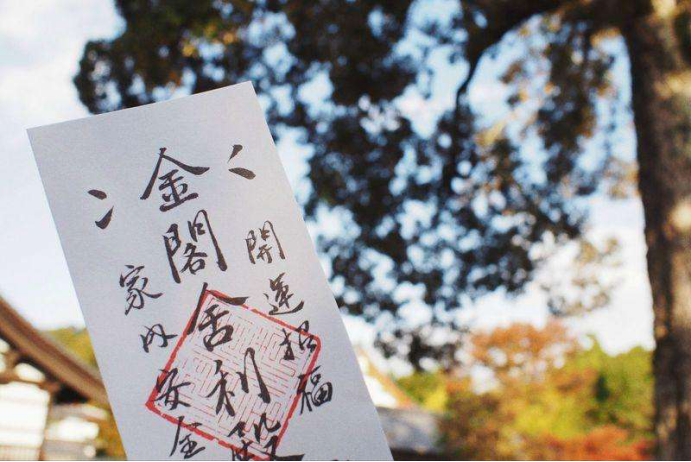 開運招福
金閣舎利殿
家内安全